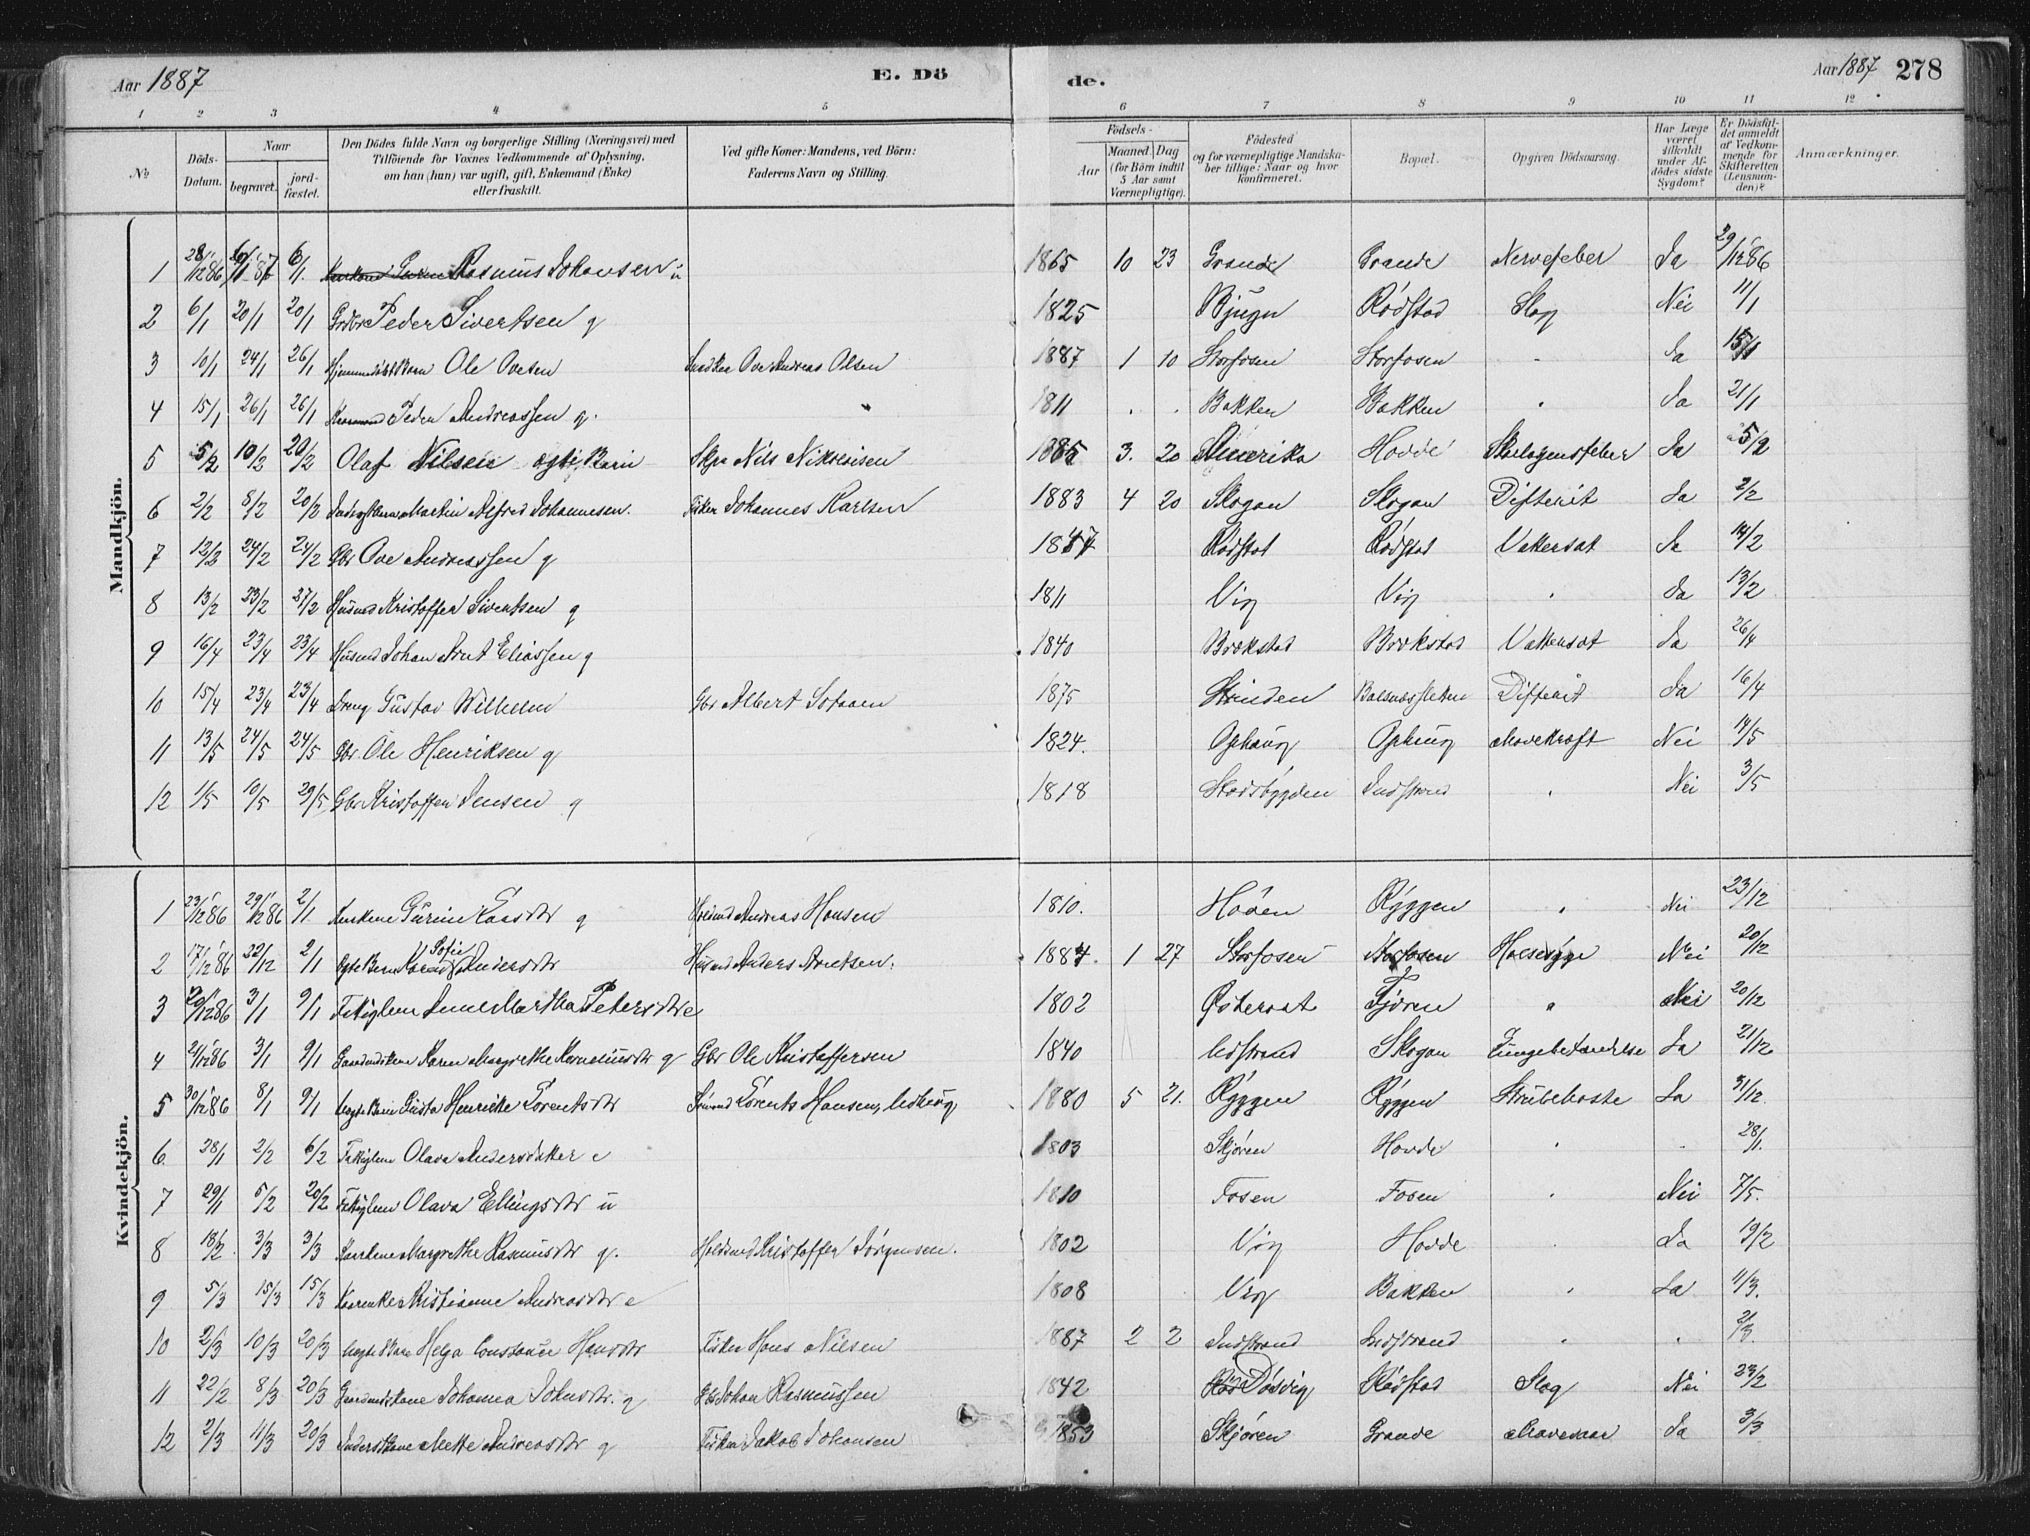 Aar 1887 E. Dö de. Aar 1887 278
1 2 3 4 5 6 7 8 9 10 11 12
№ Döds-Datum. Naar begravet. jordfæstet. Den Dödes fulde Navn og borgerlige Stilling (Næringsvei) med Tilföiende for Voxnes Vedkommende af Oplysning, om han (hun) var ugift, gift, Enkemand (Enke) eller fraskilt. Ved gifte Koner: Mandens, ved Börn: Faderens Navn og Stilling. Födsels- Aar Maaned Dag (for Börn indtil 5 Aar samt Værnepligtige). Födested og for værnepligtige Mandskaber tillige: Naar og hvor konfirmeret. Bopæl. Opgiven Dödsaarsag. Har Læge været tilkaldt under Afdödes sidste Sygdom? Er Dödsfaldet anmeldt af Vedkommende for Skifteretten (Lensmanden)? Anmærkninger.
Mandkjön.
1 28/12 86 6/1 87 6/1 Rasmus Johansen u 1865 10 23 Grande Grande Nervefeber Ja 29/12 86
2 6/1 20/1 20/1 Grdbr Peder Sivertsen g 1825 Bjugn Rödstad Slag Nei 11/1
3 10/1 24/1 26/1 Hjemmedöbt Barn Ole Ovesen Ove Andreas Olsen 1887 1 10 Storfosen Storfosen " Ja 15/1
4 15/1 26/1 26/1 Peder Andreassen g. 1811 . . Bakken Bakken " Ja 21/1
5 5/2 10/2 20/2 Olaf Nilsen ægte Barn Nils 1885 3. 20 Amerika Hovde Skarlagensfeber Ja 5/2
6 2/2 8/2 20/2 Martin Alfred Johannesen. Fisker Johannes Karlsen 1883 4 20 Skogan Skogan Difterit Ja 2/2
7 12/2 24/2 24/2 Gbr Ove Andreassen g 1847 Rödstad Rödstad Vattersot Ja 14/2
8 13/2 23/2 27/2 Husmd Kristoffer Sivertsen g 1811 Vig Vig " Ja 13/2
9 16/4 23/4 23/4 Husmd Johan Arnt Eliassen g 1840 Brekstad Brekstad Vattersot Ja 26/4
10 15/4 23/4 23/4 Dreng Gustav Wilhelm Gbr Albert 1875 Strinden Balsnessletten Difterit Ja 16/4
11 13/5 24/5 24/5 Gbr. Ole Henriksen g 1824. Ophaug Ophaug Mavekræft Nei 14/5
12 1/5 10/5 29/5 Gbr Kristoffer Jensen g 1818 Stadsbygden Indstrand " Nei 3/5
Kvindekjön.
1 23/12 86 29/12 86 2/1 Gurine g Andreas Hansen 1810. Höven Ryggen " Nei 23/12
2 17/12 86 22/12 2/1 Ægte Barn Sofie Andersdtr Husmd Anders Arntsen. 1884. 1 27 Storfosen Storfosen Halsesyge Nei 20/12
3 20/12 86 3/1 9/1 Fattiglem Anne Martha Petersdtr e 1802 Østeraat Fjören " Nei 20/12
4 21/12 86 3/1 9/1 Gaardmdskone Karen Margrethe Korneliusdtr g Gbr Ole Kristoffersen 1840 Udstrand Skogan Lungebetændelse Ja 21/12
5 30/12 86 8/1 9/1 Uægte Barn Gusta Henrikke Lorentsdtr Lorents Hansen, 1880 5 21. Ryggen Ryggen Strubehoste Ja 31/12
6 28/1 2/2 6/2 Fattiglem Olava Andersdatter e 1803 Skjören Hovde " . 28/1
7 29/1 5/2 20/2 Fattiglem Olava Ellingsdtr u 1810 Fosen Fosen " Nei 7/5.
8 18/2 3/3 3/3 Margrethe Rasmusdtr g. Kristoffer Jörgensen. 1802 Vig Hovde " Ja 19/2
9 5/3 15/3 15/3 Kristianne Andreasdtr e 1808 Vig Bakken " Ja 11/3.
10 2/3 10/3 20/3 Uægte Barn Helga Constance Hansdtr Fisker Hans Nilsen 1887 2 2 Indstrand Indstrand " " 2/3
11 22/2 8/3 20/3 Gaardmdskone Johanna Johnsdtr. g Gbr Johan Rasmussen 1842 Dösvig Rödstad Slag Nei 23/2
12 2/3 11/3 20/3 Mette Andreasdtr g Fisker Jakob Johansen 1853 Skjören Grande Mavesaar Ja 3/3